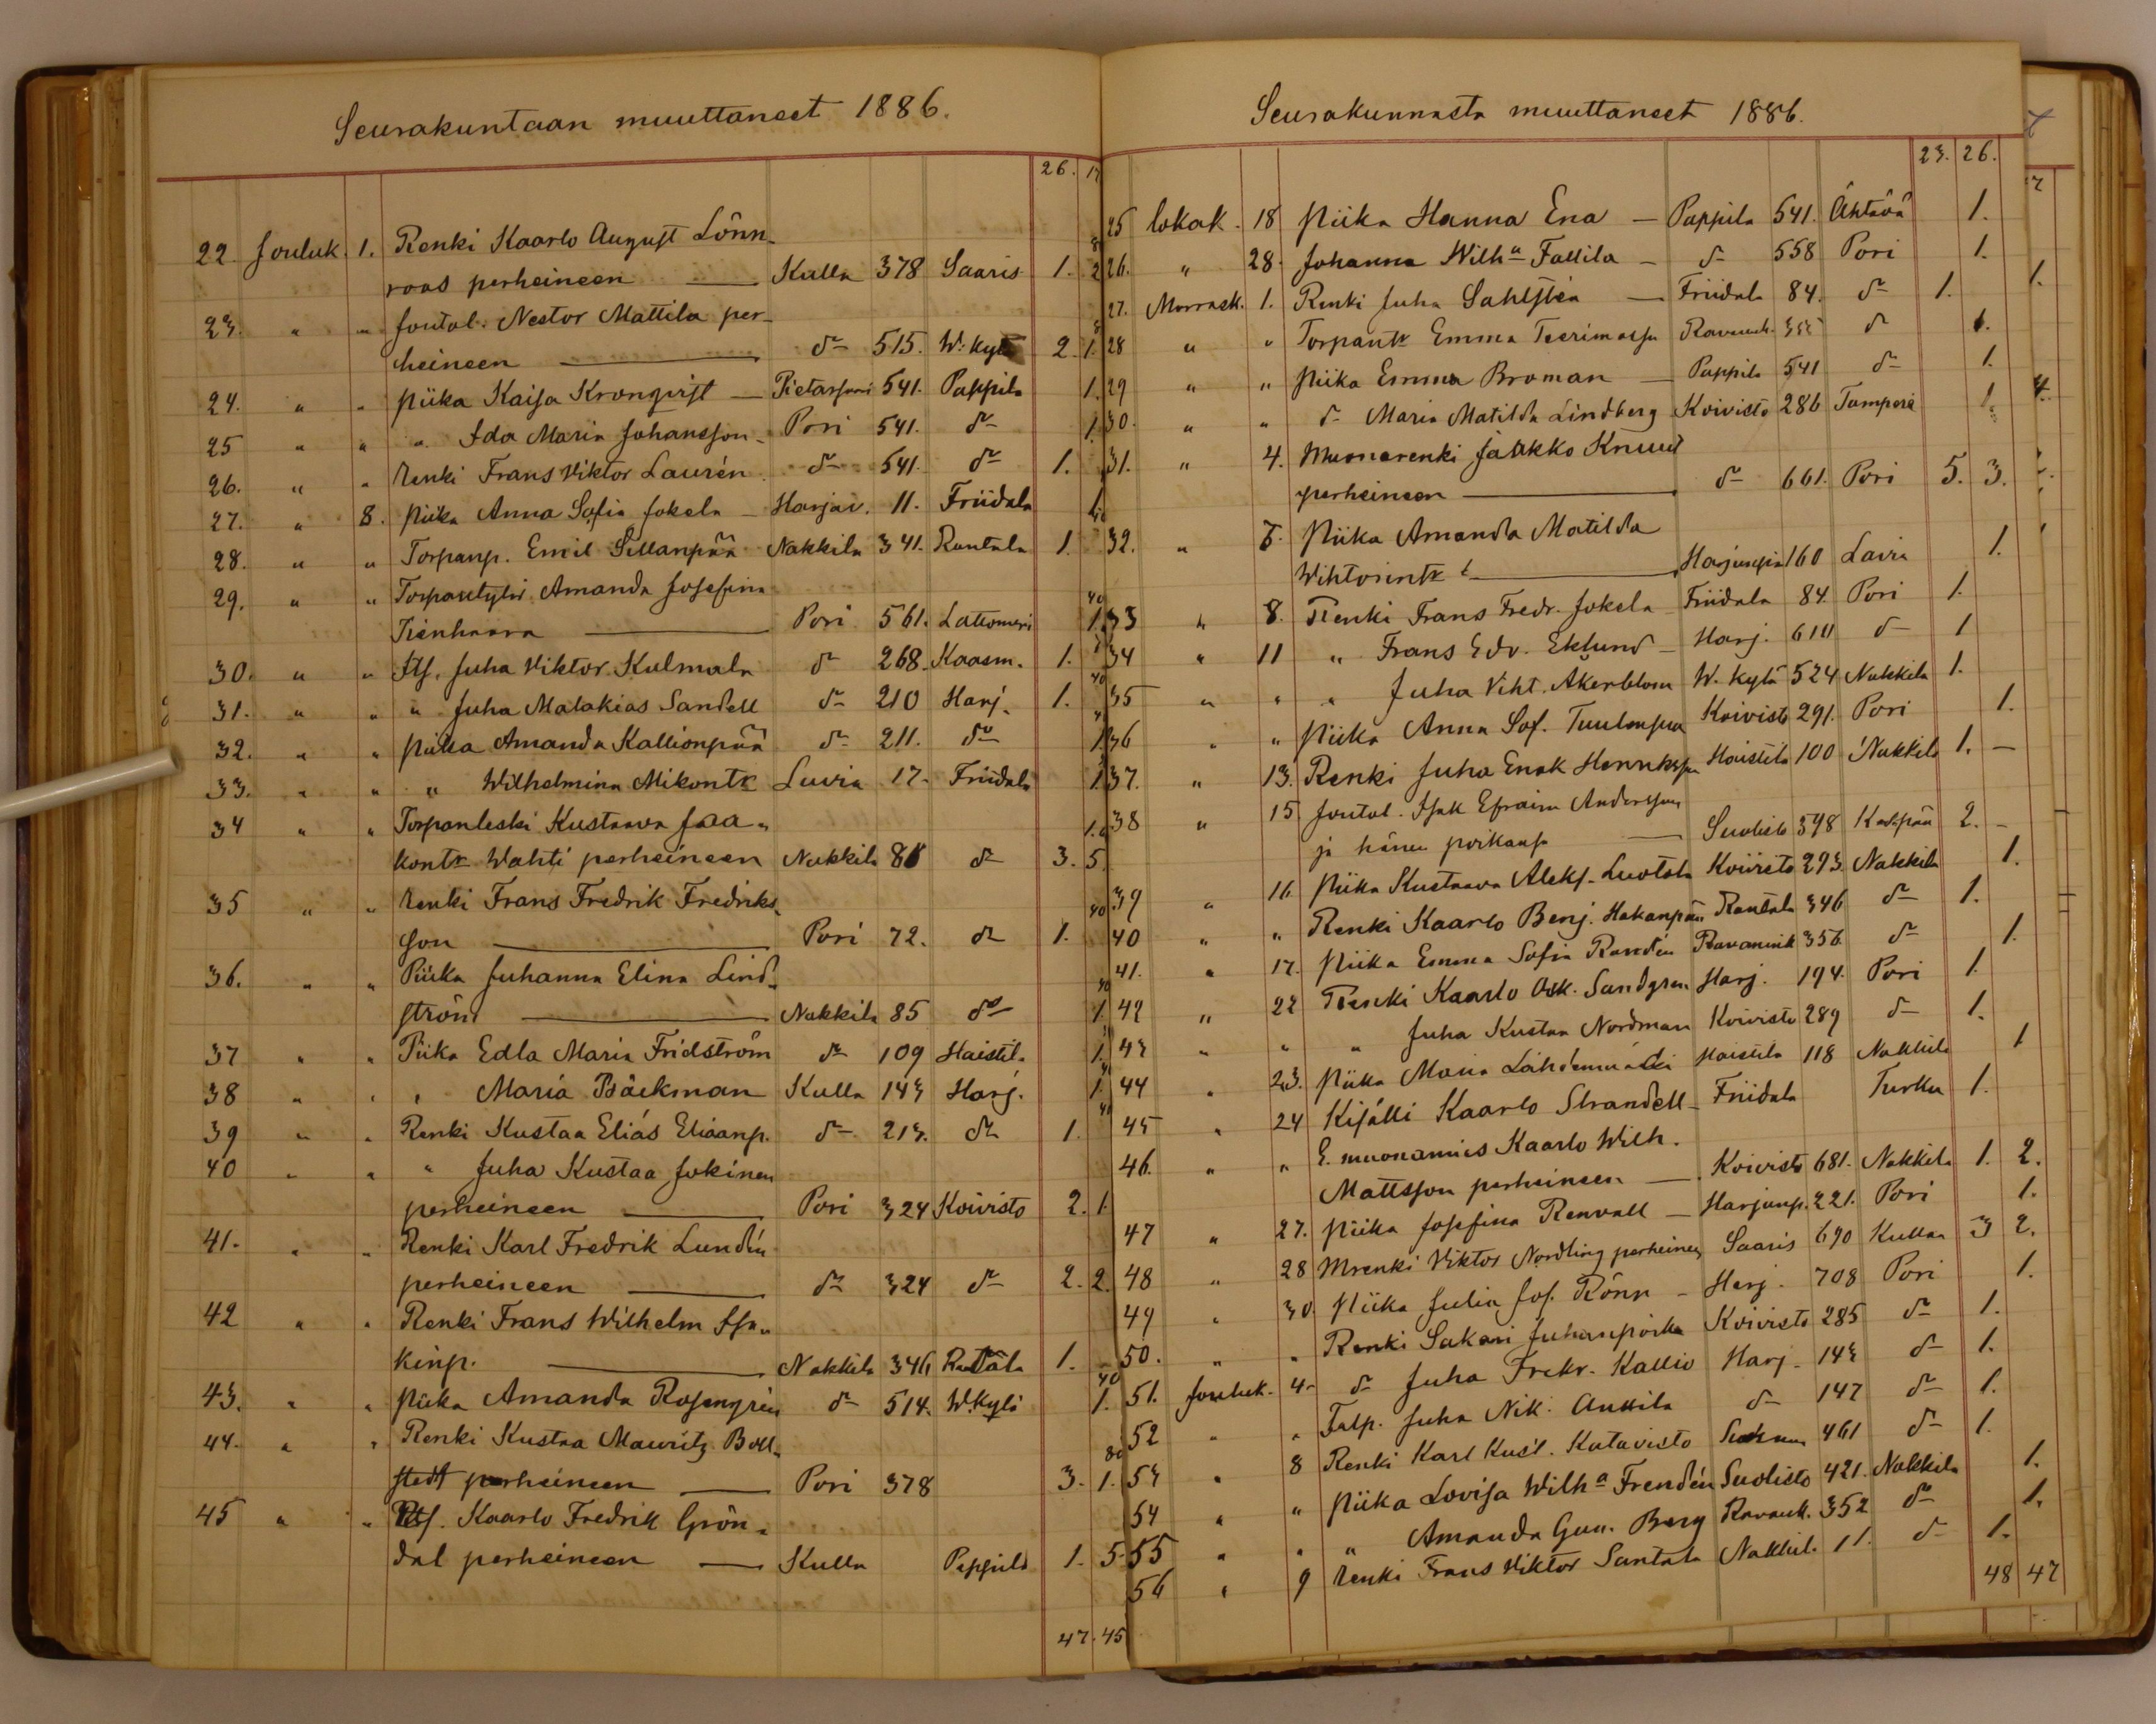 Seurakuntaan muuttaneet 1886.
26. 17
22. Jouluk. 1. Renki Kaarlo August Lönn-
roos perheineen — Kulla 378 Saaris 1. 2
23. " " Joutol. Nestor Mattila per-
heineen — d:o 515. W:kylä 2. 1.
24. " " Piika Kaisa Kronqvist — Pietarsaari 541. Pappila 1.
25 " " " Ida Maria Johansson - Pori 541. d:o 1.
26. " " Renki Frans Viktor Laurén d:o 541. d:o 1.
27. " 8. Piika Anna Sofia Jokela - Harjav. 11. Friidala 1.
28. " " Torpanp. Emil Sillanpää Nakkila 341. Rantala 1.
29. " " Torpantytär Amanda Josefina
Tienhaara — Pori 561. Lattomeri 1.
30. " " Its. Juha Viktor Kulmala d:o 268. Kaasm. 1.
31. " " " Juha Malakias Sandell d:o 210 Harj. 1.
32. " " Piika Amanda Kallionpää d:o 211. d:o 1.
33. " " " Wilhelmina Mikontr Luvia 17. Friidala 1.
34 " " Torpanleski Kustaava Jaa-
kontr Wahti perheineen Nakkila 86 d:o 3. 5.
35 " " Renki Frans Fredrik Fredriks-
son — Pori 72. d:o 1.
36. " " Piika Juhanna Elina Lind-
ström — Nakkila 85 d:o 1.
37 " " Piika Edla Maria Fridström d:o 109 Haistila 1.
38 " " " Maria Bäckman Kulla 143 Harj. 1.
39 " " Renki Kustaa Elias Eliaanp. d:o 213. d:o 1.
40 " " " Juha Kustaa Jokinen
perheineen — Pori 324 Koivisto 2. 1.
41. " " Renki Karl Fredrik Lundén
perheineen — d:o 324 d:o 2. 2.
42 " " Renki Frans Wilhelm Isa-
kinp. — Nakkila 346 Rantala 1.
43. " " Piika Amanda Rosengrén d:o 514. W:kylä 1.
44. " " Renki Kustaa Mauritz Boll-
stedt perheineen — Pori 378 3. 1.
45 " " Its. Kaarlo Fredrik Grön-
dal perheineen — Kulla Pappila 1. 5.
47. 45
Seurakunnasta muuttaneet 1886.
23. 26.
25 lokak. 18 Piika Hanna Ena — Pappila 541. Ähtävä 1.
26. " 28. Johanna Wilh:a Fallila — d:o 558 Pori 1.
27. Marrask. 1. Renki Juha Sahlstén — Friidala 84. d:o 1.
28 " " Torpantr Emma Teerimassa Ravanik. 355 d:o 1.
29 " " Piika Emma Broman — Pappila 541 d:o 1.
30. " " d:o Maria Matilda Lindberg Koivisto 286 Tampere 1.
31. " 4. Muonarenki Jaakko Knuut
perheineen — d:o 661. Pori 5. 3.
32. " 6. Piika Amanda Matilda
Wihtorintr — Harjunpää 160 Lavia 1.
33 " 8. Renki Frans Fredr. Jokela Friidala 84 Pori 1.
34 " 11 " Frans Edv. Eklund — Harj. 611 d:o 1
35 " " " Juha Viht. Åkerblom W. kylä 524 Nakkila 1.
36 " " Piika Anna Sof. Tuulenpää Koivisto 291. Pori 1.
37. " 13. Renki Juha Enok Henriksson Haistila 100 Nakkila 1. —
38 " 15 Joutol. Isak Efraim Andersson
ja hänen poikansa — Suolisto 398 Kankaanpää 2. -
39 " 16 Piika Kustaava Aleks. Luotola Koivisto 293. Nakkila 1.
40 " " Renki Kaarlo Benj. Hakanpää Rantala 346 d:o 1.
41. " 17. Piika Emma Sofia Randén Ravanink 356. d:o 1.
42 " 22 Renki Kaarlo Osk. Sandgren Harj. 194. Pori 1.
43 " " " Juha Kustaa Nordman Koivisto 289 d:o 1.
44 " 23. Piika Maria Lähdemmäki Haistila 118 Nakkila 1
45 " 24 Kisälli Kaarlo Strandell - Friidala Turku 1.
46. " " E. muonamies Kaarlo Wilh.
Mattsson perheineen — Koivisto 681. Nakkila 1. 2.
47 " 27. Piika Josefina Renvall — Harjunp. 221. Pori 1.
48 " 28 Mrenki Viktor Nordling perheineen Saaris 690 Kullaa 3 2.
49 " 30. Piika Julia Jos. Rönn - Harj. 708 Pori 1.
50. " " Renki Sakari Juhanpoika Koivisto 285 d:o 1.
51. Jouluk. 4. d:o Juha Fredr. Kallio Harj. 143 d:o 1.
52 " " Talp. Juha Nik. Anttila d:o 147 d:o 1.
53 " 8 Renki Karl Kust. Katavisto 461 d:o 1.
54 " " Piika Lovisa Wilh:a Frendén Suolisto 421. Nakkila 1.
55 " " " Amanda Gun. Berg Ravanik. 352 d:o 1.
56 " 9 Renki Frans Viktor Santala Nakkil. 11. d:o 1.
48 47